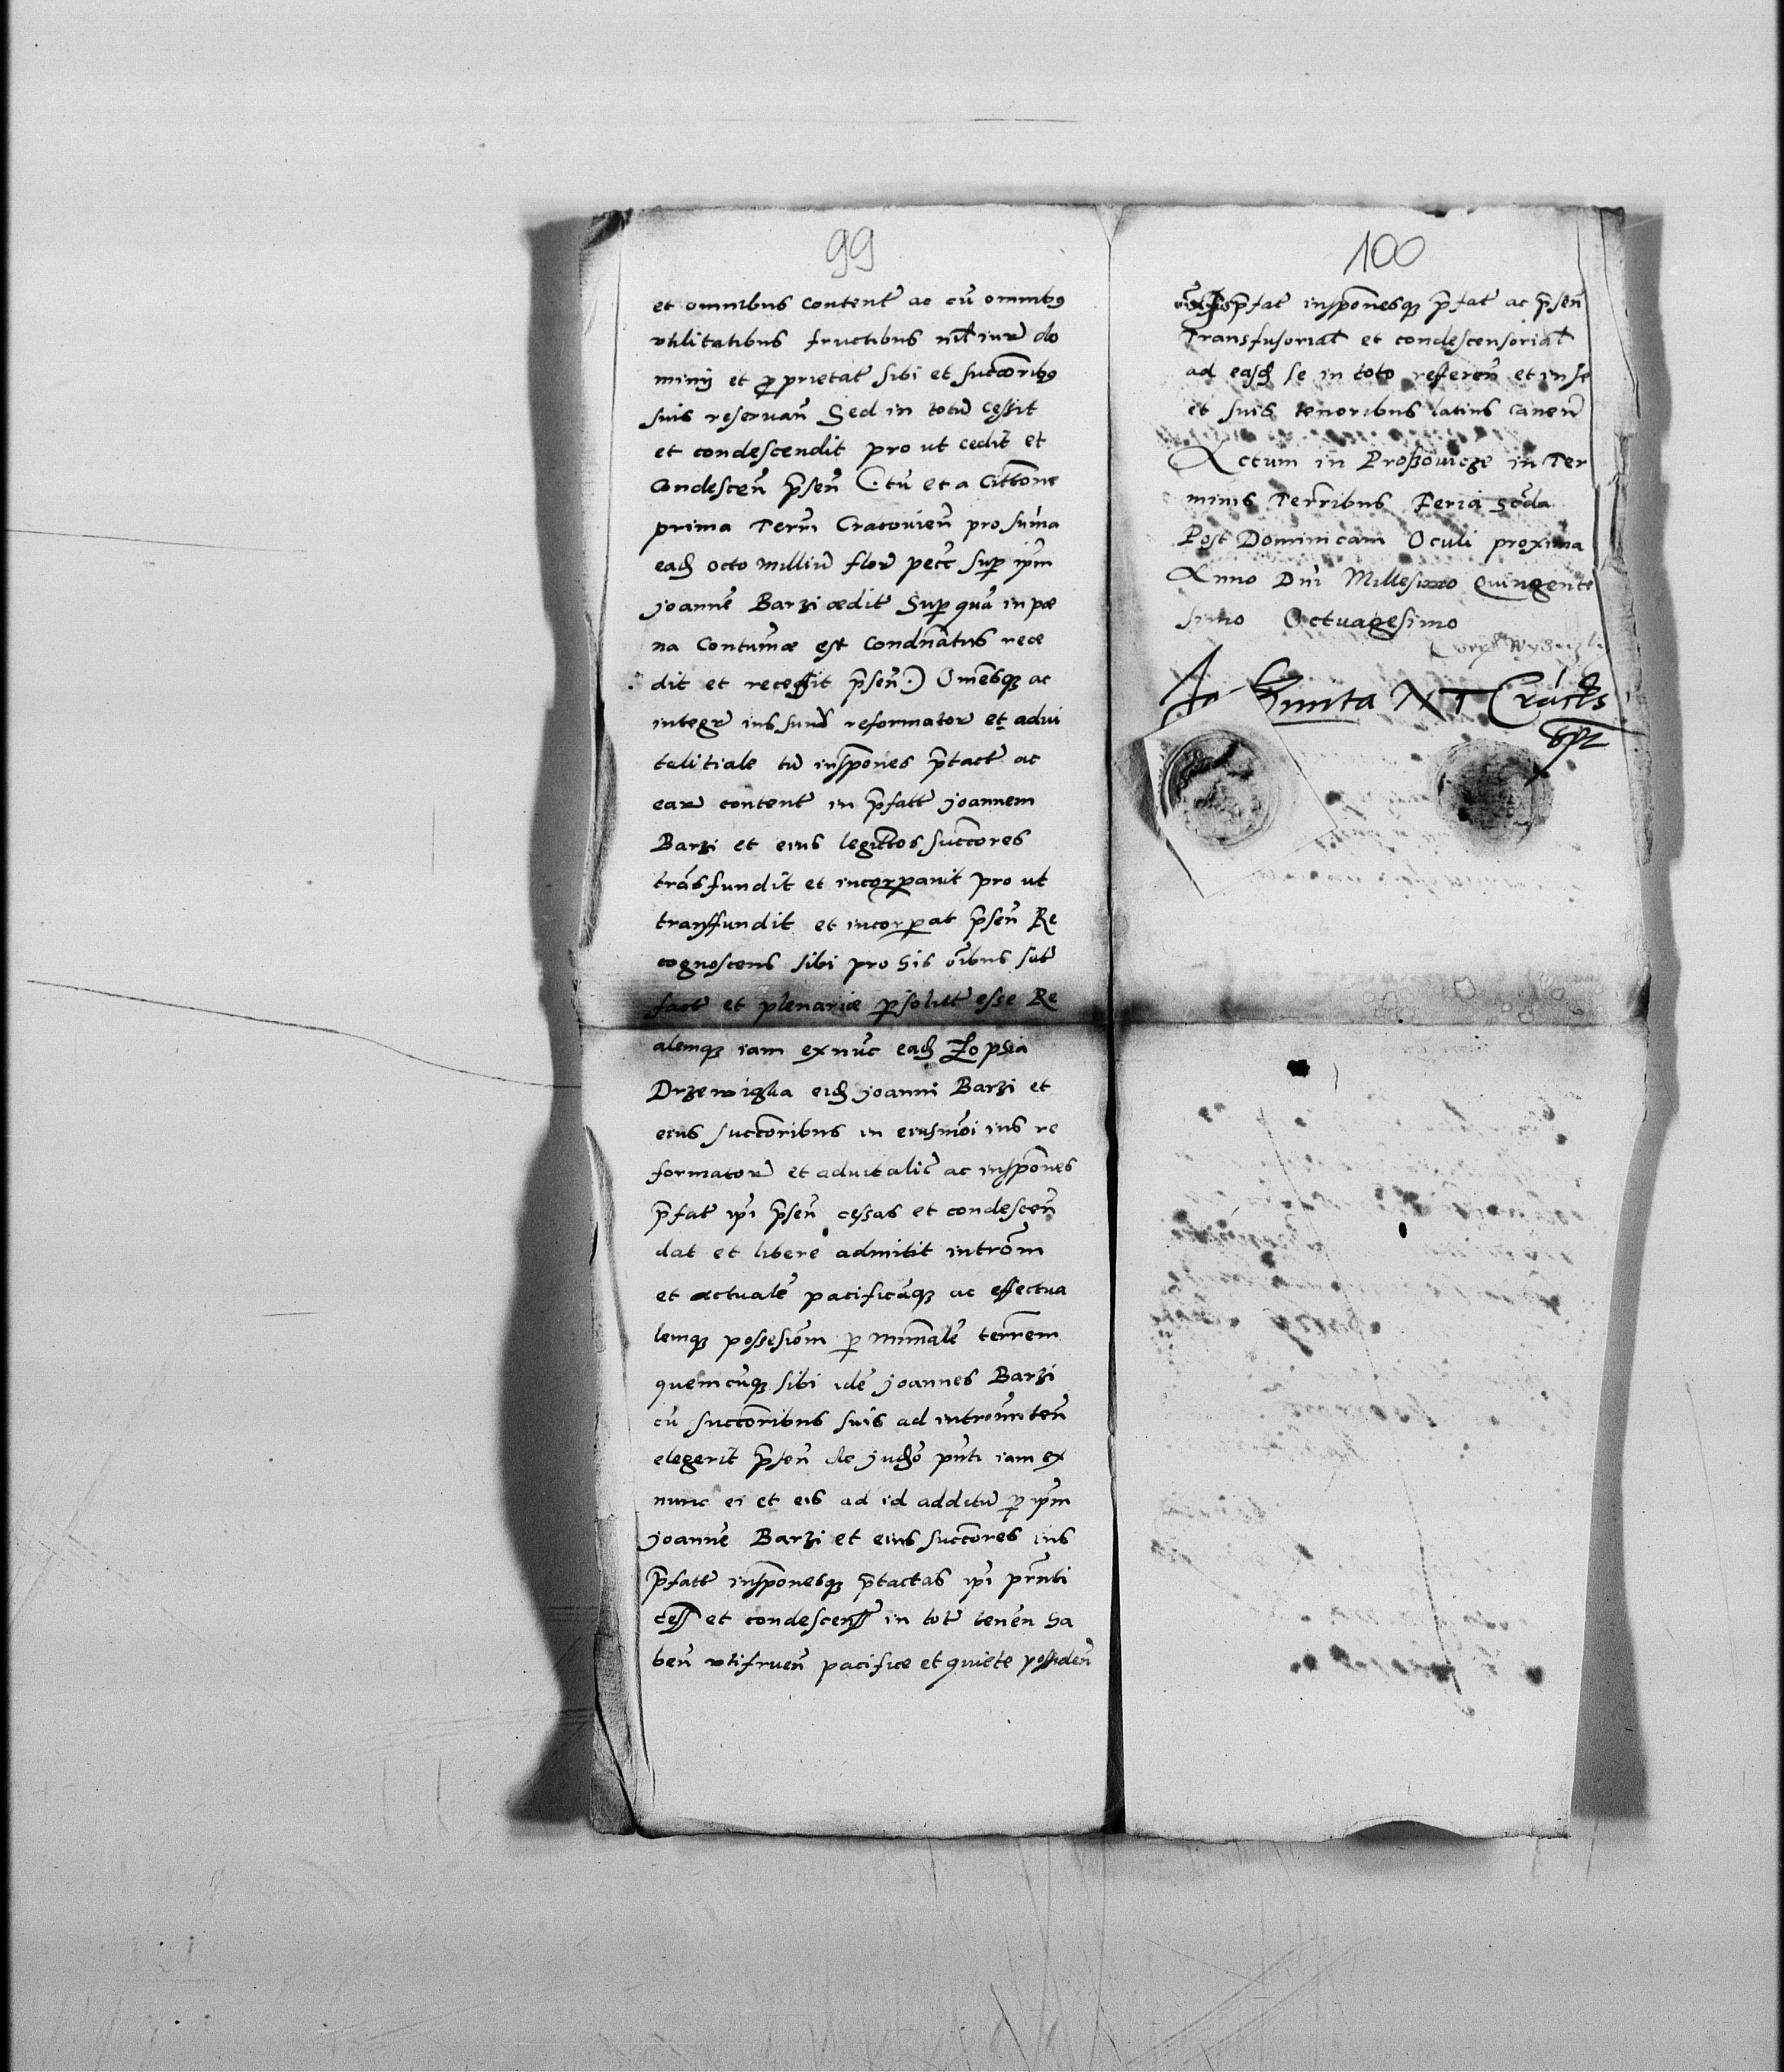 99
et omnibus content̃ ac cũ omnibꝯ
vtilitatibus fructibus nil iur̃ do
minij et ꝓprietat̃ sibi et succõribꝯ
suis reseruañ Sed in totũ cessit
et condescendit pro ut cedit et
condesceñ p̃señ (·tũ et a Cittõne
prima Terñ Cracovieñ pro sum̃a
eadẽ octo milliũ flor̃ pecc̃ sup̱ ip̃m
Joannẽ Barzi ædit̃ Sup̱ quã in pæ
na Contum̃æ est Condñatus rece
dit et recessit p̃señ·) Om̃esqꝫ ac
integr̃ ius sũm reformator̃ et advi
talitiale tũ insp̃ones p̃tact̃ ac
ear̃ content̃ in p̃fatt̃ Joannem
Barzi et eius legitt̃os succõres
trãsfundit et incorp̱auit pro ut
transfundit et incorp̱at p̃señ Re
cognoscens sibi pro his õibus sat̃
fact̃ et plenariæ p̱solut̃ esse Re
alemqꝫ iam ex nũc eadẽ Zophia
Drzewiczka eidẽ Joanni Barzi et
eius succõribus in eiusmõi ius re
formator̃ et aduitalic̃ ac insp̃ones
p̃fat̃ ip̃i p̃señ cessas et condesceñ
dat et libere admitit intrõm
et actualẽ pacificãqꝫ ac effectua
lemqꝫ possesiõm p̱ Minĩsĩalẽ terr̃em
quemcũqꝫ sibi idẽ Joannes Barzi
cũ succõribus suis ad intromiteñ
elegerit p̃señ de Judõ p̃nti iam ex
nunc ei et eis ad id additũ p̱ ip̃m
Joannẽ Barzi et eius succõres ius
p̃fatt̃ insp̃onesqꝫ p̃tactas ip̃i p̃nti
cess̃ et condescenss̃ in tot̃ teneñ ha
beñ vtifrueñ pacifice et quiete possideñ
100
p̃fat̃ insp̃onesqꝫ p̃fat̃ ac p̃señ
Transfusorial̃ et condescensorial̃
ad easdẽ se in toto refferen̄ et in se
et suis tenoribus latius caneñ
Actum in Proszowicze in Ter
minis Terr̃ibus Feria scd̃a
Post Dominicam Oculi proxima
Anno Dñi Millesimo Quingente
simo Octuagesimo